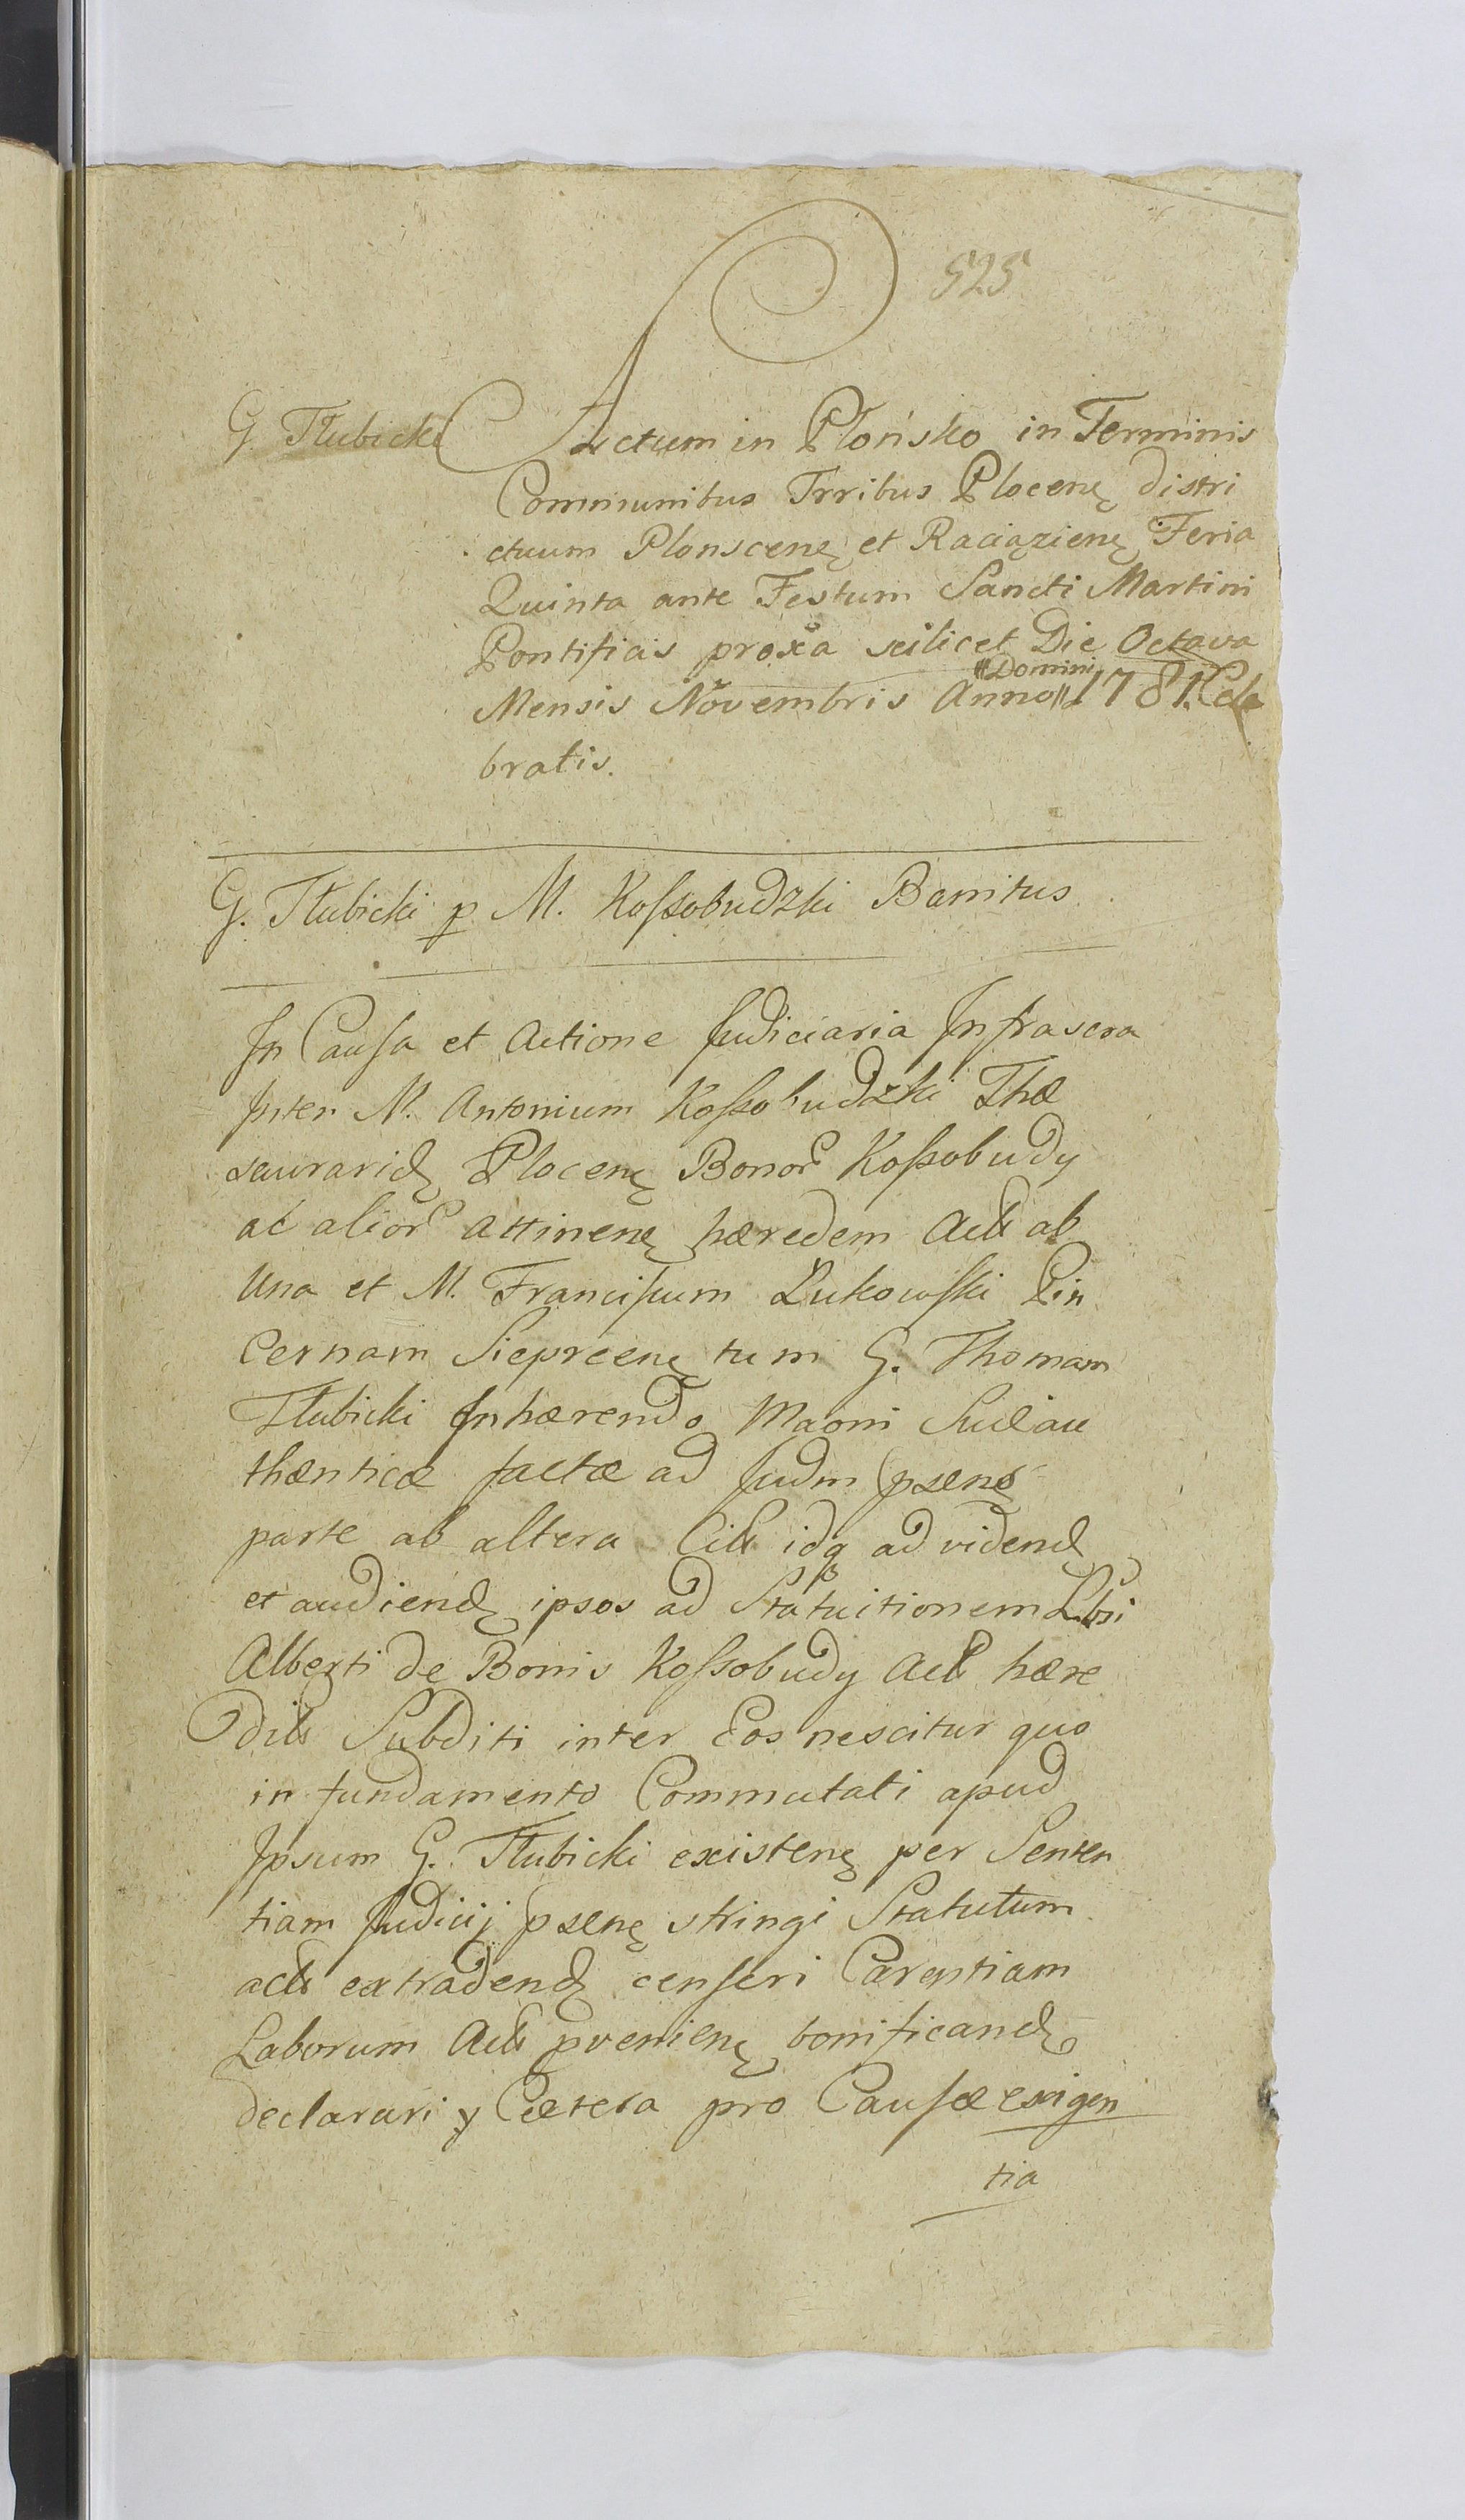 525
G. Tłubicki Actum in Płońsko in Terminis
Communibus Trribus Plocenę distri
ctuum Plonscenę et Raciązienę Feria
Quinta ante Festum Sancti Martini
Pontificis proxa scilicet Die Octava
Mensis Novembris Anno Domini 1781 Cele
bratis.
G. Tłubicki p M. Kossobudzki Banitus
In Causa et Actione Judiciaria Infrascra
Inter M. Antonium Kossobudzki Thæ
saurarid Plocenę Bonor Kossobudy
ac alior attinenę hæredem Acti ab
Una et M. Franciscum Łukowski Pin
cernam Siepreenę tum G. Thomam
Tłubicki Inhærendo Maoni Suæ au
thænticæ factæ ad Judm psenę
parte ab altera idq ad videnð
et audiend ipsos ad Statuitionem Lbsi
Alberti de Bonis Kossobudy hære
Subditi inter Eos nescitur quo
in fundamento Commutati apud
Ipsum G. Tłubicki existenę per Senten
tiam Judicij psenę stringi Statutum
extradend censeri Carentiam
Laborum prenienę bonificand
declarari y Cætera pro Causæ exigen
tia